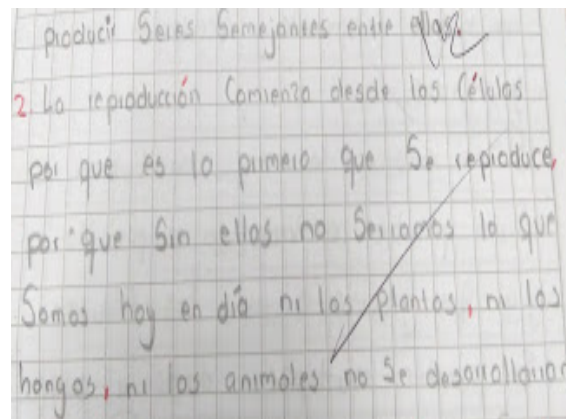 producir Seres Semejantes entre ellas.
2 La reproducción Comienza desde las Células
por que es lo primero que Se reproduce,
por que Sin ellas no Seriamos lo que
Somos hoy en día ni las plantas, ni los
hongos, ni los animales no Se desarrollarian